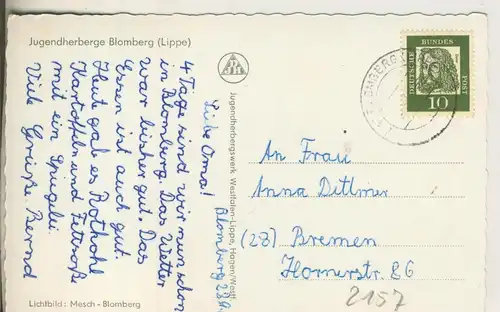 Jugendherberge Blomberg (Lippe)
Blomberg
Liebe Oma!
4 Tage sind wir nun schon
in Blomberg. Das Wetter
war bisher gut. Das
Essen ist auch gut.
Heute gab es Rotkohl
Kartoffeln und Fettsoße
mit ein Spiegelei.
Viele Grüße Bernd
Lichtbild: Mesch - Blomberg
Jugendherbergswerk Westfalen-Lippe, Hagen/Westf.
DEUTSCHE
BUNDES
POST
10
BLOMBERG
An Frau
Anna Dittmer
(28) Bremen
Hornerstr. 86
2157